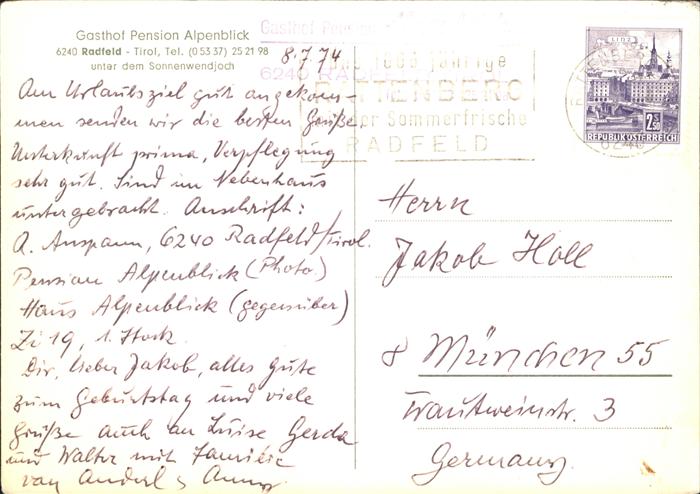 Gasthof Pension Alpenblick
6240 Radfeld - Tirol, Tel. (0 53 37) 25 21 98
unter dem Sonnenwendjoch
8.7.74
Am Urlaubsziel gut angekom-
men senden wir die besten Grüße.
Unterkunft prima, Verpflegung
sehr gut. Sind im Nebenhaus
untergebracht. Anschrift:
A. Anspann, 6240 Radfeld/Tirol.
Pension Alpenblick (Photo)
Haus Alpenblick (gegenüber)
Zi 19, 1. Stock.
Dir, lieber Jakob, alles Gute
zum Geburtstag und viele
Grüße auch an Luise Gerda
und Walter mit Familie
von Anderl &
Gasthof Pension
6240
1000 jährige
RATTENBERG
der Sommerfrische
RADFELD
LINZ
2.50
REPUBLIK ÖSTERREICH
6240
Herrn
Jakob Holl
8 München 55
Trautweinstr. 3
Germany.